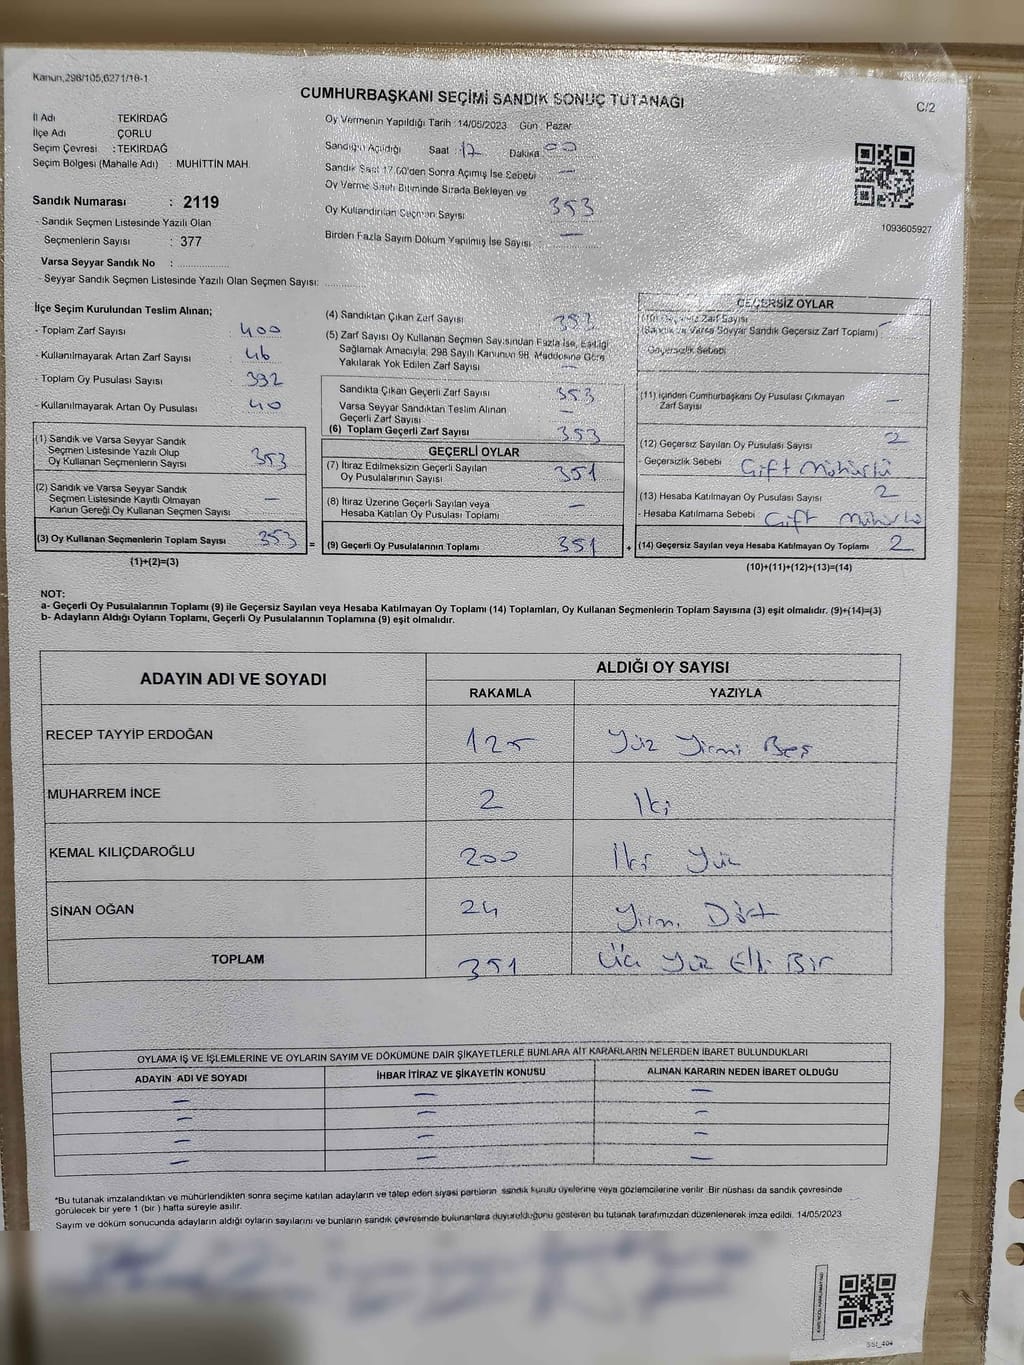 Kanun,298/105,6271/18-1
CUMHURBAŞKANI SEÇİMİ SANDIK SONUÇ TUTANAĞI
C/2
İl Adı : TEKİRDAĞ
İlçe Adı : ÇORLU
Seçim Çevresi : TEKİRDAĞ
Seçim Bölgesi (Mahalle Adı) : MUHİTTİN MAH.
Sandık Numarası : 2119
- Sandık Seçmen Listesinde Yazılı Olan
Seçmenlerin Sayısı : 377
Varsa Seyyar Sandık No :
- Seyyar Sandık Seçmen Listesinde Yazılı Olan Seçmen Sayısı:
Oy Vermenin Yapıldığı Tarih :14/05/2023 Gün : Pazar
Sandığın Açıldığı Saat : 17 Dakika : 00
Sandık Saat 17.00'den Sonra Açımış İse Sebebi : —
Oy Verme Saati Bitiminde Sırada Bekleyen ve
Oy Kullandırılan Seçmen Sayısı : 353
Birden Fazla Sayım Döküm Yapılmış İse Sayısı : —
1093605927
İlçe Seçim Kurulundan Teslim Alınan;
- Toplam Zarf Sayısı : 400
- Kullanılmayarak Artan Zarf Sayısı : 46
- Toplam Oy Pusulası Sayısı : 392
- Kullanılmayarak Artan Oy Pusulası : 40
(1) Sandık ve Varsa Seyyar Sandık
Seçmen Listesinde Yazılı Olup
Oy Kullanan Seçmenlerin Sayısı 353
(2) Sandık ve Varsa Seyyar Sandık
Seçmen Listesinde Kayıtlı Olmayan
Kanun Gereği Oy Kullanan Seçmen Sayısı —
(3) Oy Kullanan Seçmenlerin Toplam Sayısı 353
(1)+(2)=(3)
(4) Sandıktan Çıkan Zarf Sayısı 353
(5) Zarf Sayısı Oy Kullanan Seçmen Sayısından Fazla İse, Eşitliği
Sağlamak Amacıyla, 298 Sayılı Kanunun 98. Maddesine Göre
Yakılarak Yok Edilen Zarf Sayısı —
Sandıkta Çıkan Geçerli Zarf Sayısı 353
Varsa Seyyar Sandıktan Teslim Alınan
Geçerli Zarf Sayısı —
(6) Toplam Geçerli Zarf Sayısı 353
GEÇERLİ OYLAR
(7) İtiraz Edilmeksizin Geçerli Sayılan
Oy Pusulalarının Sayısı 351
(8) İtiraz Üzerine Geçerli Sayılan veya
Hesaba Katılan Oy Pusulası Toplamı —
= (9) Geçerli Oy Pusulalarının Toplamı 351
GEÇERSİZ OYLAR
(10) Geçersiz Zarf Sayısı
(Sandık ve Varsa Seyyar Sandık Geçersiz Zarf Toplamı) —
Geçersizlik Sebebi
(11) İçinden Cumhurbaşkanı Oy Pusulası Çıkmayan
Zarf Sayısı —
(12) Geçersiz Sayılan Oy Pusulası Sayısı 2
- Geçersizlik Sebebi Çift Mühürlü
(13) Hesaba Katılmayan Oy Pusulası Sayısı 2
- Hesaba Katılmama Sebebi Çift Mühürlü
+ (14) Geçersiz Sayılan veya Hesaba Katılmayan Oy Toplamı 2
(10)+(11)+(12)+(13)=(14)
NOT:
a- Geçerli Oy Pusulalarının Toplamı (9) ile Geçersiz Sayılan veya Hesaba Katılmayan Oy Toplamı (14) Toplamları, Oy Kullanan Seçmenlerin Toplam Sayısına (3) eşit olmalıdır. (9)+(14)=(3)
b- Adayların Aldığı Oyların Toplamı, Geçerli Oy Pusulalarının Toplamına (9) eşit olmalıdır.
ADAYIN ADI VE SOYADI ALDIĞI OY SAYISI
RAKAMLA YAZIYLA
RECEP TAYYİP ERDOĞAN 125 Yüz Yirmi Beş
MUHARREM İNCE 2 İki
KEMAL KILIÇDAROĞLU 200 İki Yüz
SİNAN OĞAN 24 Yirmi Dört
TOPLAM 351 Üç Yüz Elli Bir
OYLAMA İŞ VE İŞLEMLERİNE VE OYLARIN SAYIM VE DÖKÜMÜNE DAİR ŞİKAYETLERLE BUNLARA AİT KARARLARIN NELERDEN İBARET BULUNDUKLARI
ADAYIN ADI VE SOYADI İHBAR İTİRAZ VE ŞİKAYETİN KONUSU ALINAN KARARIN NEDEN İBARET OLDUĞU
— — —
— — —
— — —
— — —
*Bu tutanak imzalandıktan ve mühürlendikten sonra seçime katılan adayların ve talep eden siyasi partilerin sandık kurulu üyelerine veya gözlemcilerine verilir .Bir nüshası da sandık çevresinde
görülecek bir yere 1 (bir ) hafta süreyle asılır.
Sayım ve döküm sonucunda adayların aldığı oyların sayılarını ve bunların sandık çevresinde bulunanlara duyurulduğunu gösteren bu tutanak tarafımızdan düzenlenerek imza edildi. 14/05/2023